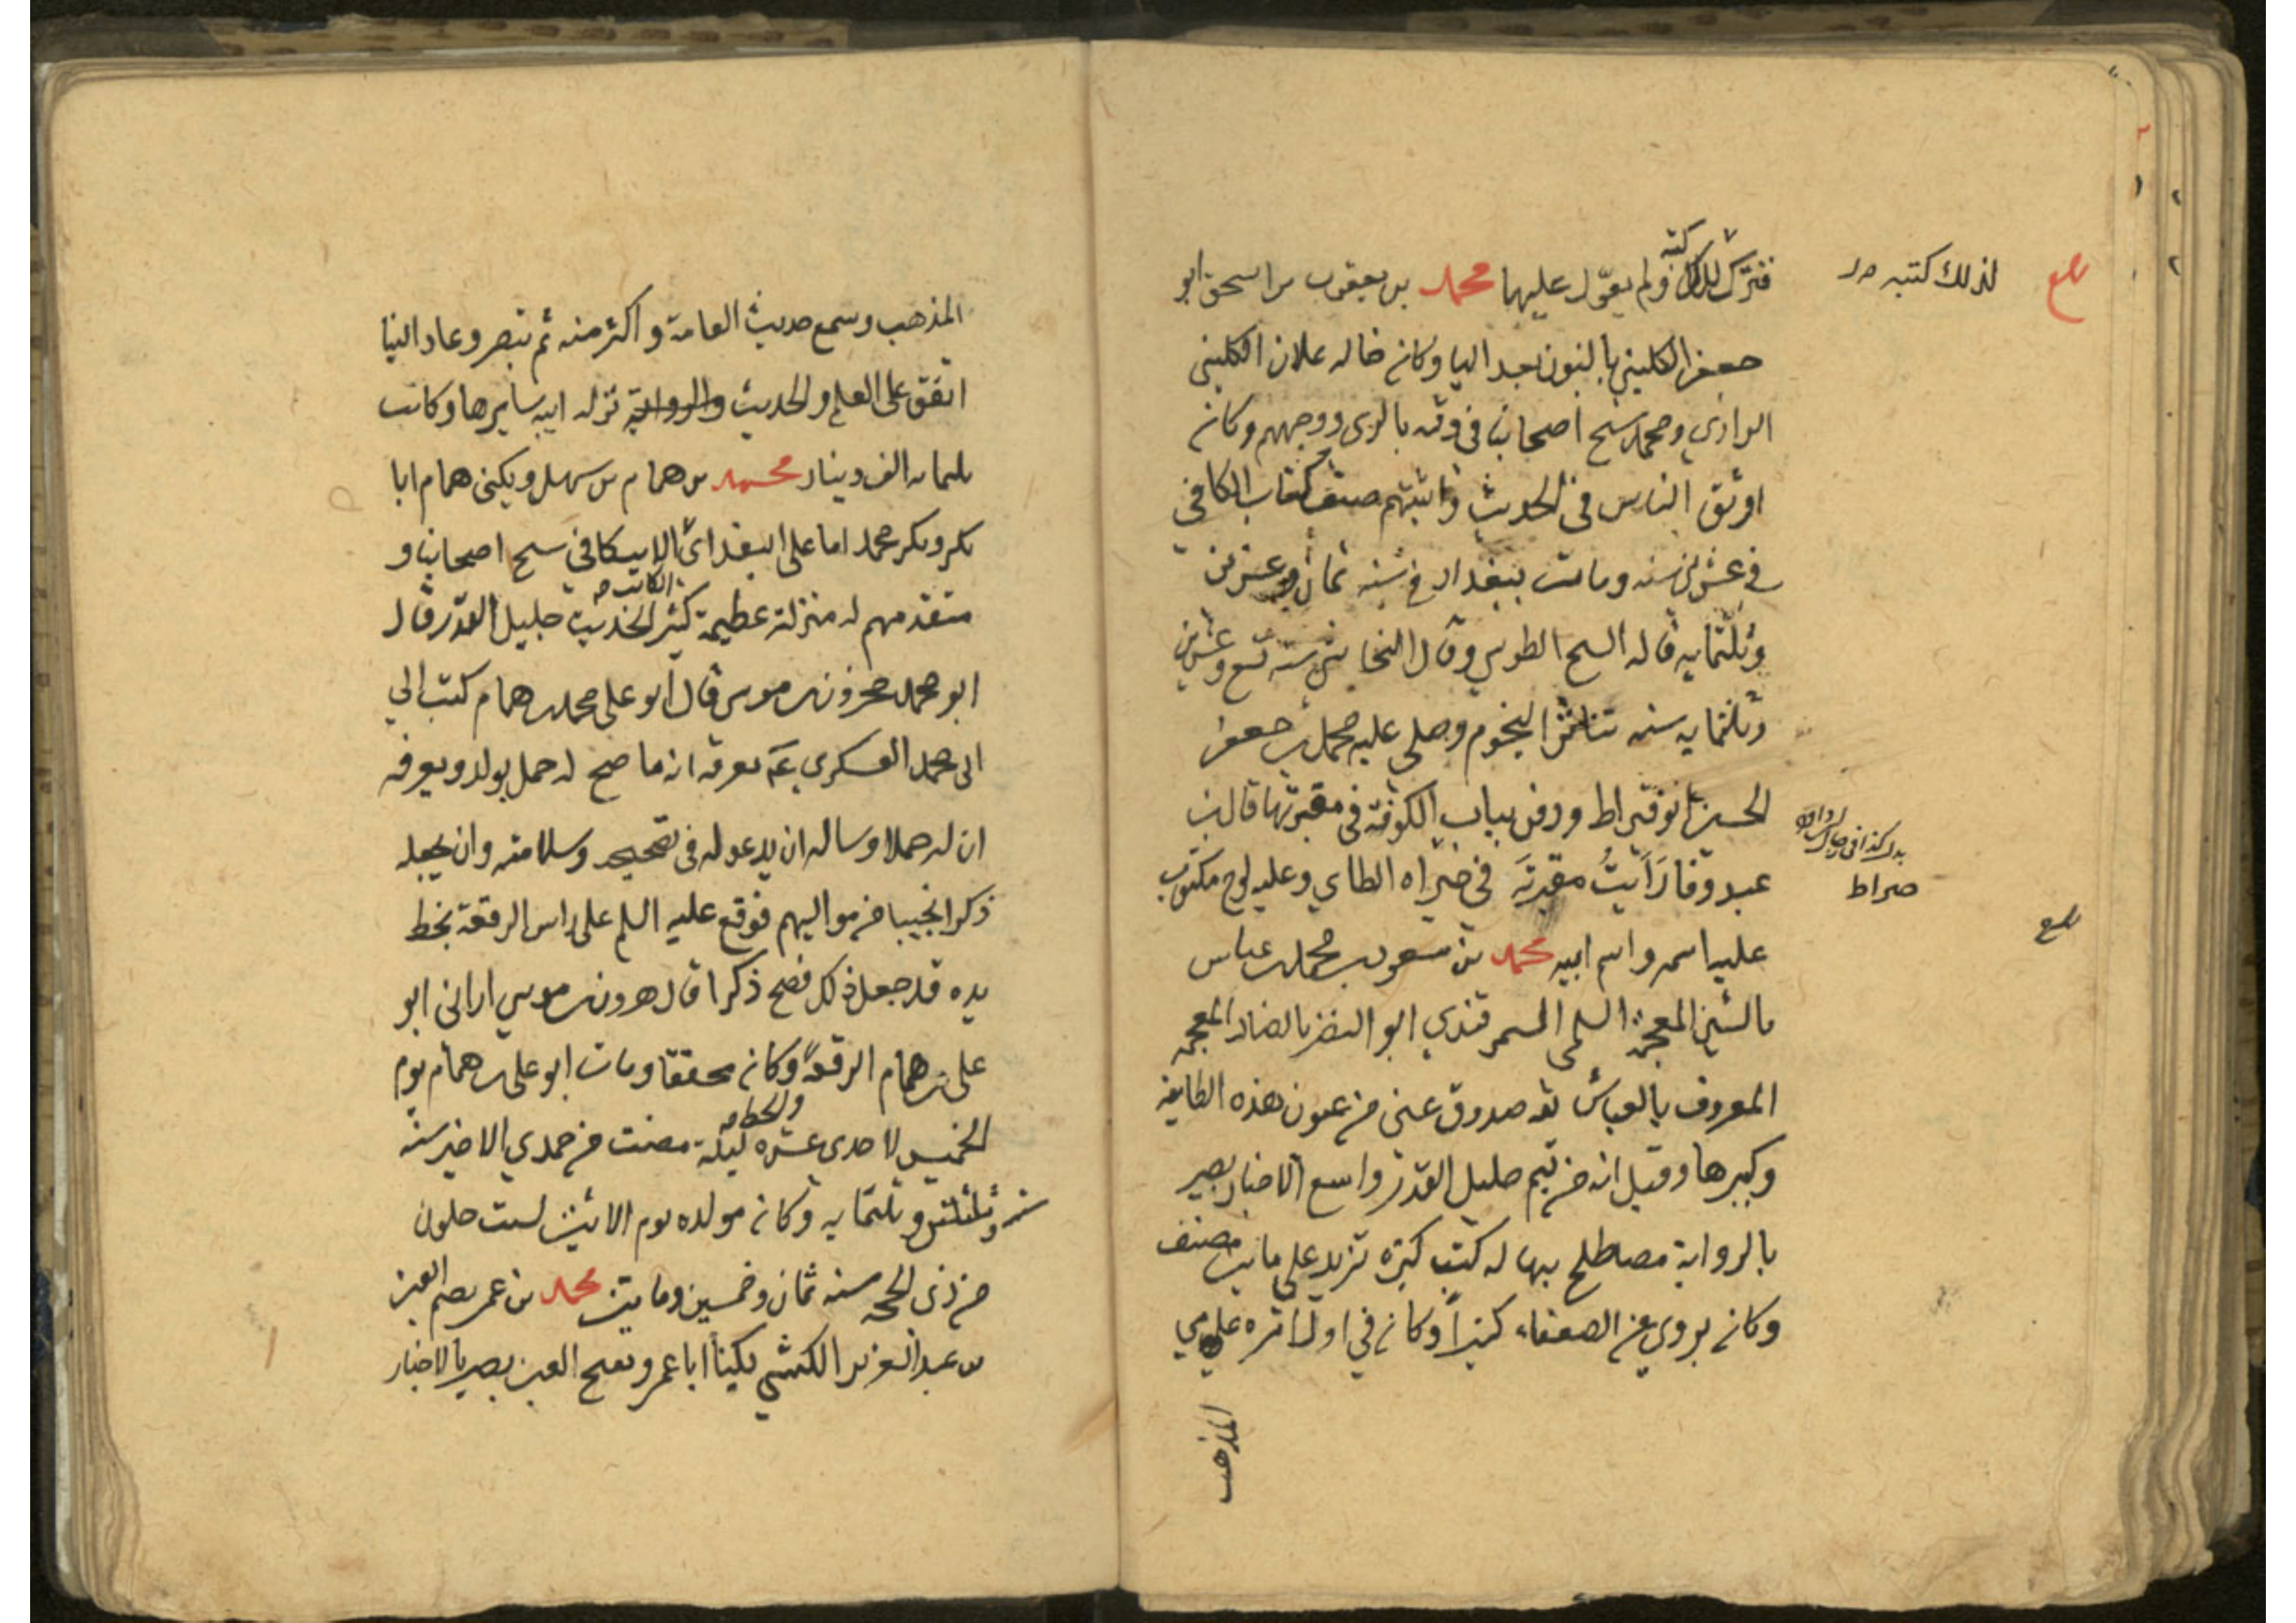 فترك لذلك كتبه ولم يعول عليها محمد بن يعقوب بن اسحق ابو
لذلك كتبه
جعفر الكليني بالنون بعد اليا وكان خاله علان الكليني
الرازي ومحمد شيخ اصحابنا في وقته بالري ووجههم وكان
اوثق الناس في الحديث واثبتهم صنف كتاب الكافي
في عشرين سنه ومات ببغداد في سنه ثمان وعشرين
وثلثمايه قاله الشيخ الطوسي وقال النجاشي سنه تسع وعشرين
وثلثمايه سنه تناثر النجوم وصلى عليه محمد بن جعفر
الحسني ابو قيراط ودفن بباب الكوفة في مقبرتها قال ابن
صراط
عبدون رايت مقبرته في صراه الطاي وعليه لوح مكتوب
عليه اسمه واسم ابيه محمد بن مسعود بن محمد بن عياش
بالشين المعجمة السلمي السمرقندي ابو النضر بالضاد المعجمه
المعروف بالعياشي ثقه صدوق عين من عيون هذه الطايفه
وكبيرها وقيل انه من تميم جليل القدر واسع الاخبار بصير
بالرواية مضطلع بها له كتب كثيره تزيد على مايتي مصنف
وكان يروي عن الضعفاء كثيرا وكان في اول امره عامي
المذهب
المذهب وسمع حديث العامة واكثر منه ثم تبصر وعاد الينا
انفق على العلم والحديث تركه ابيه سايرها وكانت
ثلثمايه الف دينار محمد بن همام بن سهيل ويكنى همام ابا
بكر وبكر محمد ابا علي البغدادي الاسكافي شيخ اصحابنا و
الكاتب
متقدمهم له منزلة عظيمة كثير الحديث جليل القدر قال
ابو محمد هرون بن موسى قال ابو علي محمد بن همام كتب ابي
الى محمد العسكري ع يعرفه انه ما صح له حمل بولد ويعرفه
ان له حملا وساله ان يدعو له في تصحيحه وسلامته وان يجعله
ذكرا نجيبا من مواليهم فوقع عليه السلم على راس الرقعة بخط
يده قد جعل ذلك فصح ذكرا قال هرون بن موسى اراني ابو
علي بن همام الرقعة وكان محققا ومات ابو علي بن همام يوم
والخط
الخميس لاحدى عشره ليلة مضت من جمدي الاخير سنه
ست وثلثين وثلثمايه وكان مولده يوم الاثنين لست خلون
من ذي الحجه سنه ثمان وخمسين ومايتين محمد بن عمر بضم العين
بن عبد العزيز الكشي يكنا ابا عمرو بفتح العين بصير بالاخبار